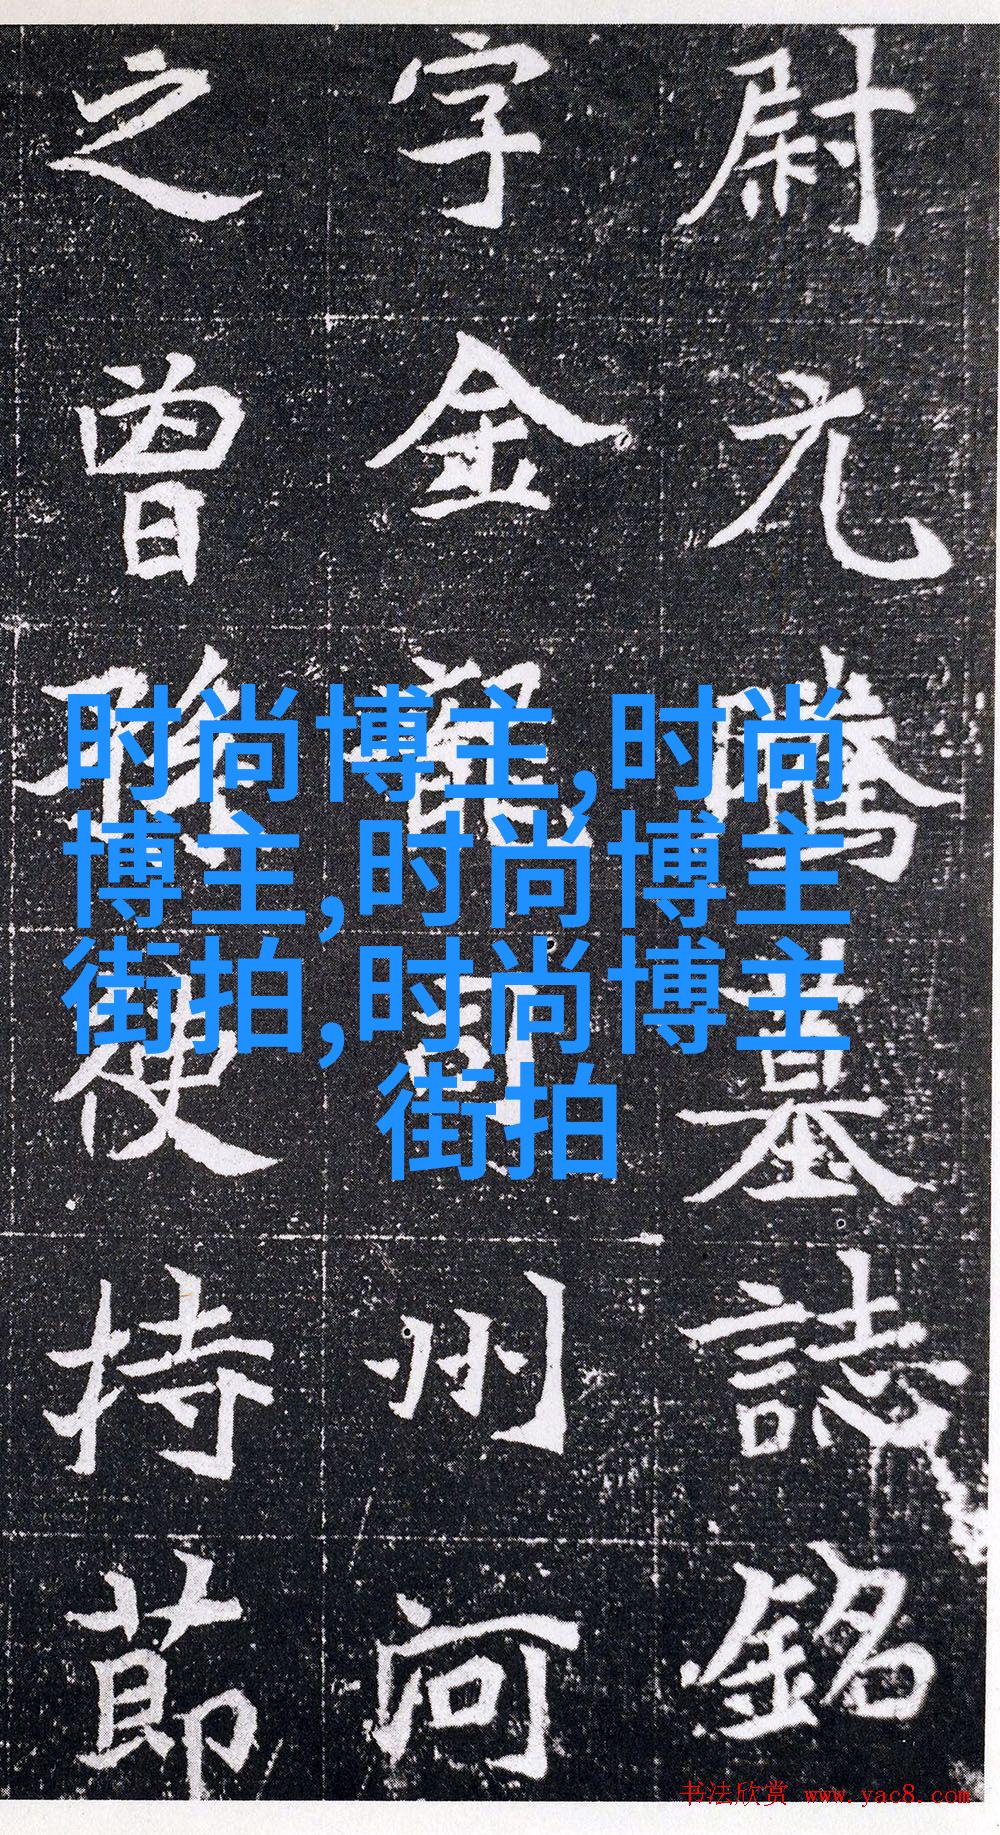 尉元騰墓誌銘
字金龍司州河
之曾孫使持節
时尚博主,时尚
博主,时尚博主
街拍,时尚博主
街拍
书法欣赏 www.yac8.com